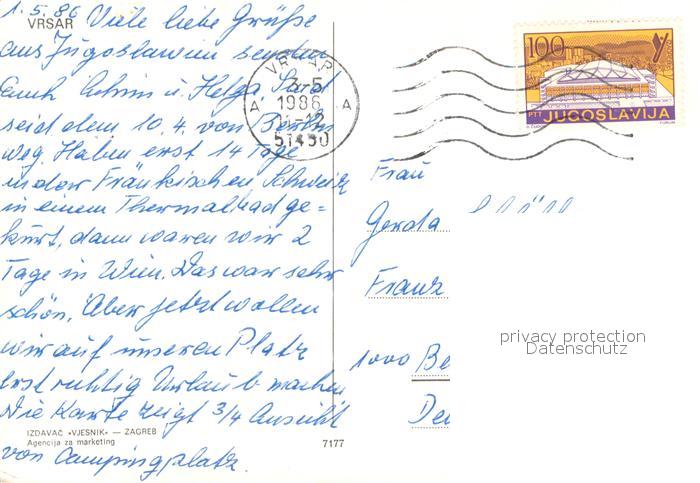 1.5.86 Viele liebe Grüße
VRSAR
aus Jugoslawien senden
Euch Achim u. Helga. Sind
seid dem 10.4. von Berlin
weg. Haben erst 14 Tage
in der Fränkischen Schweiz
in einem Thermalbad ge=
kurt, dann waren wir 2
Tage in Wien. Das war sehr
schön. Aber jetzt wollen
wir auf unseren Platz
erst richtig Urlaub machen
Die Karte zeigt 3/4 Ansicht
von Campingplatz.
IZDAVAČ »VJESNIK« — ZAGREB
Agencija za marketing
7177
VRSAR
1986
A A
51450
100
PTT JUGOSLAVIJA
Frau
Gerda
Franz
1000 Be
privacy protection
Datenschutz